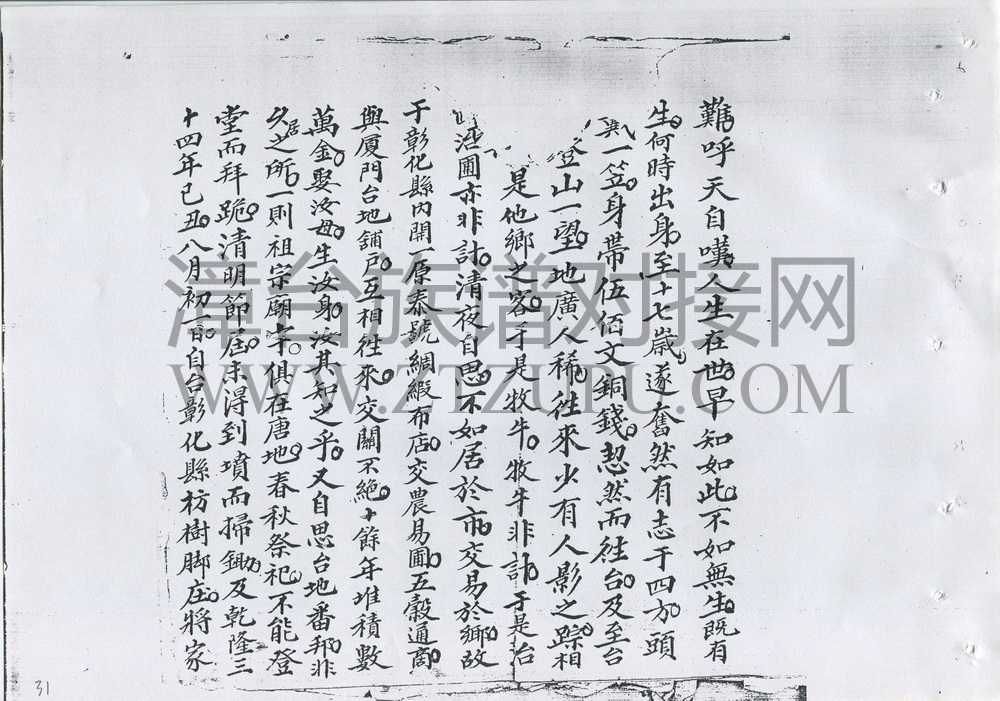 難呼天自嘆人生在世早知如此不如無生既有
生何時出身至十七歲遂奮然有志于四方頭
一笠身帶伍佰文銅錢恝然而往台及至台
登山一望地廣人稀往來少有人影之踪相
是他鄉之客于是牧牛牧牛非計于是治
治圃亦非計清夜自思不如居於市交易於鄉故
于彰化縣內開一原泰號綢緞布店交農易圃五穀通商
與厦門台地舖戶互相往來交關不絕十餘年堆積數
萬金娶汝母生汝身汝其知之乎又自思台地番邦非
久居之所一則祖宗廟宇俱在唐地春秋祭祀不能登
堂而拜跪清明節屆未得到墳而掃鋤及乾隆三
十四年已丑八月初一日自台彰化縣枋樹脚庄將家
漳台族谱对接网
WWW.ZTZUPU.COM
31